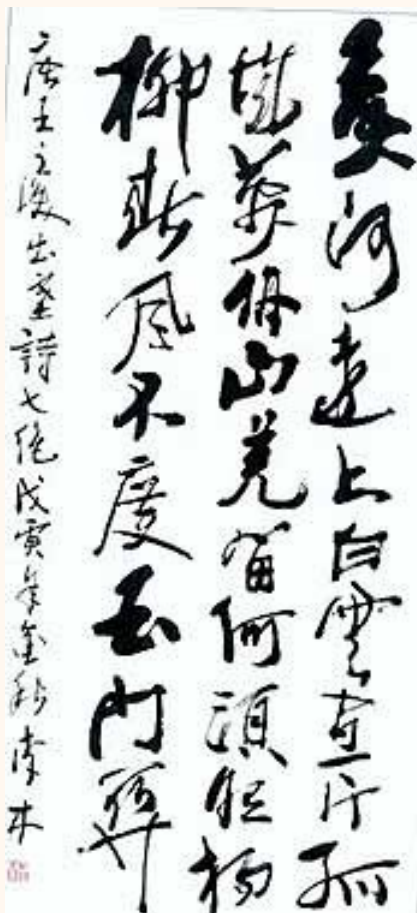 黄河遠上白雲間一片孤
城萬仞山羌笛何須怨楊
柳春風不度玉門關
唐王之渙出塞詩七絕戊寅年金秋李木